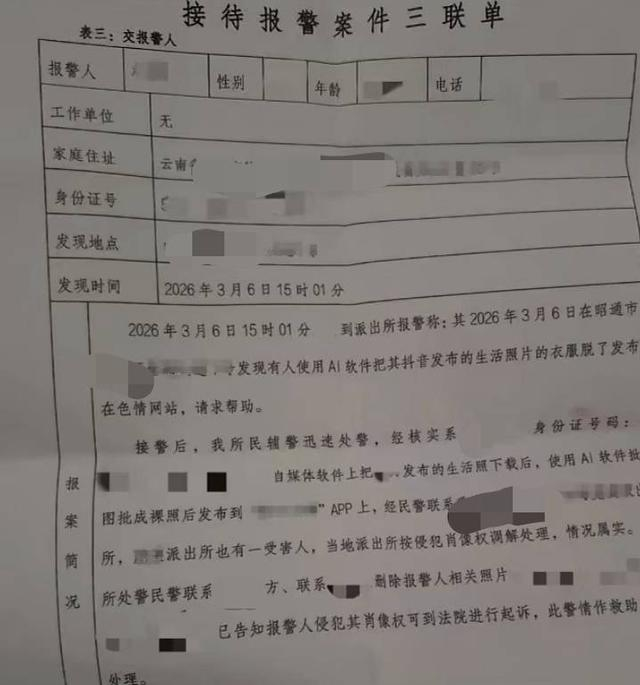 接待报警案件三联单
表三：交报警人
报警人 性别 年龄 电话
工作单位 无
家庭住址 云南
身份证号
发现地点
发现时间 2026年3月6日15时01分
2026年3月6日15时01分 到派出所报警称：其2026年3月6日在昭通市
发现有人使用AI软件把其抖音发布的生活照片的衣服脱了发布
在色情网站，请求帮助。
接警后，我所民辅警迅速处警，经核实系 身份证号码：
自媒体软件上把 发布的生活照下载后，使用AI软件批
图批成裸照后发布到 ”APP上，经民警联系
所， 派出所也有一受害人，当地派出所按侵犯肖像权调解处理，情况属实。
所处警民警联系 方、联系 删除报警人相关照片
已告知报警人侵犯其肖像权可到法院进行起诉，此警情作救助
处理。
报案简况